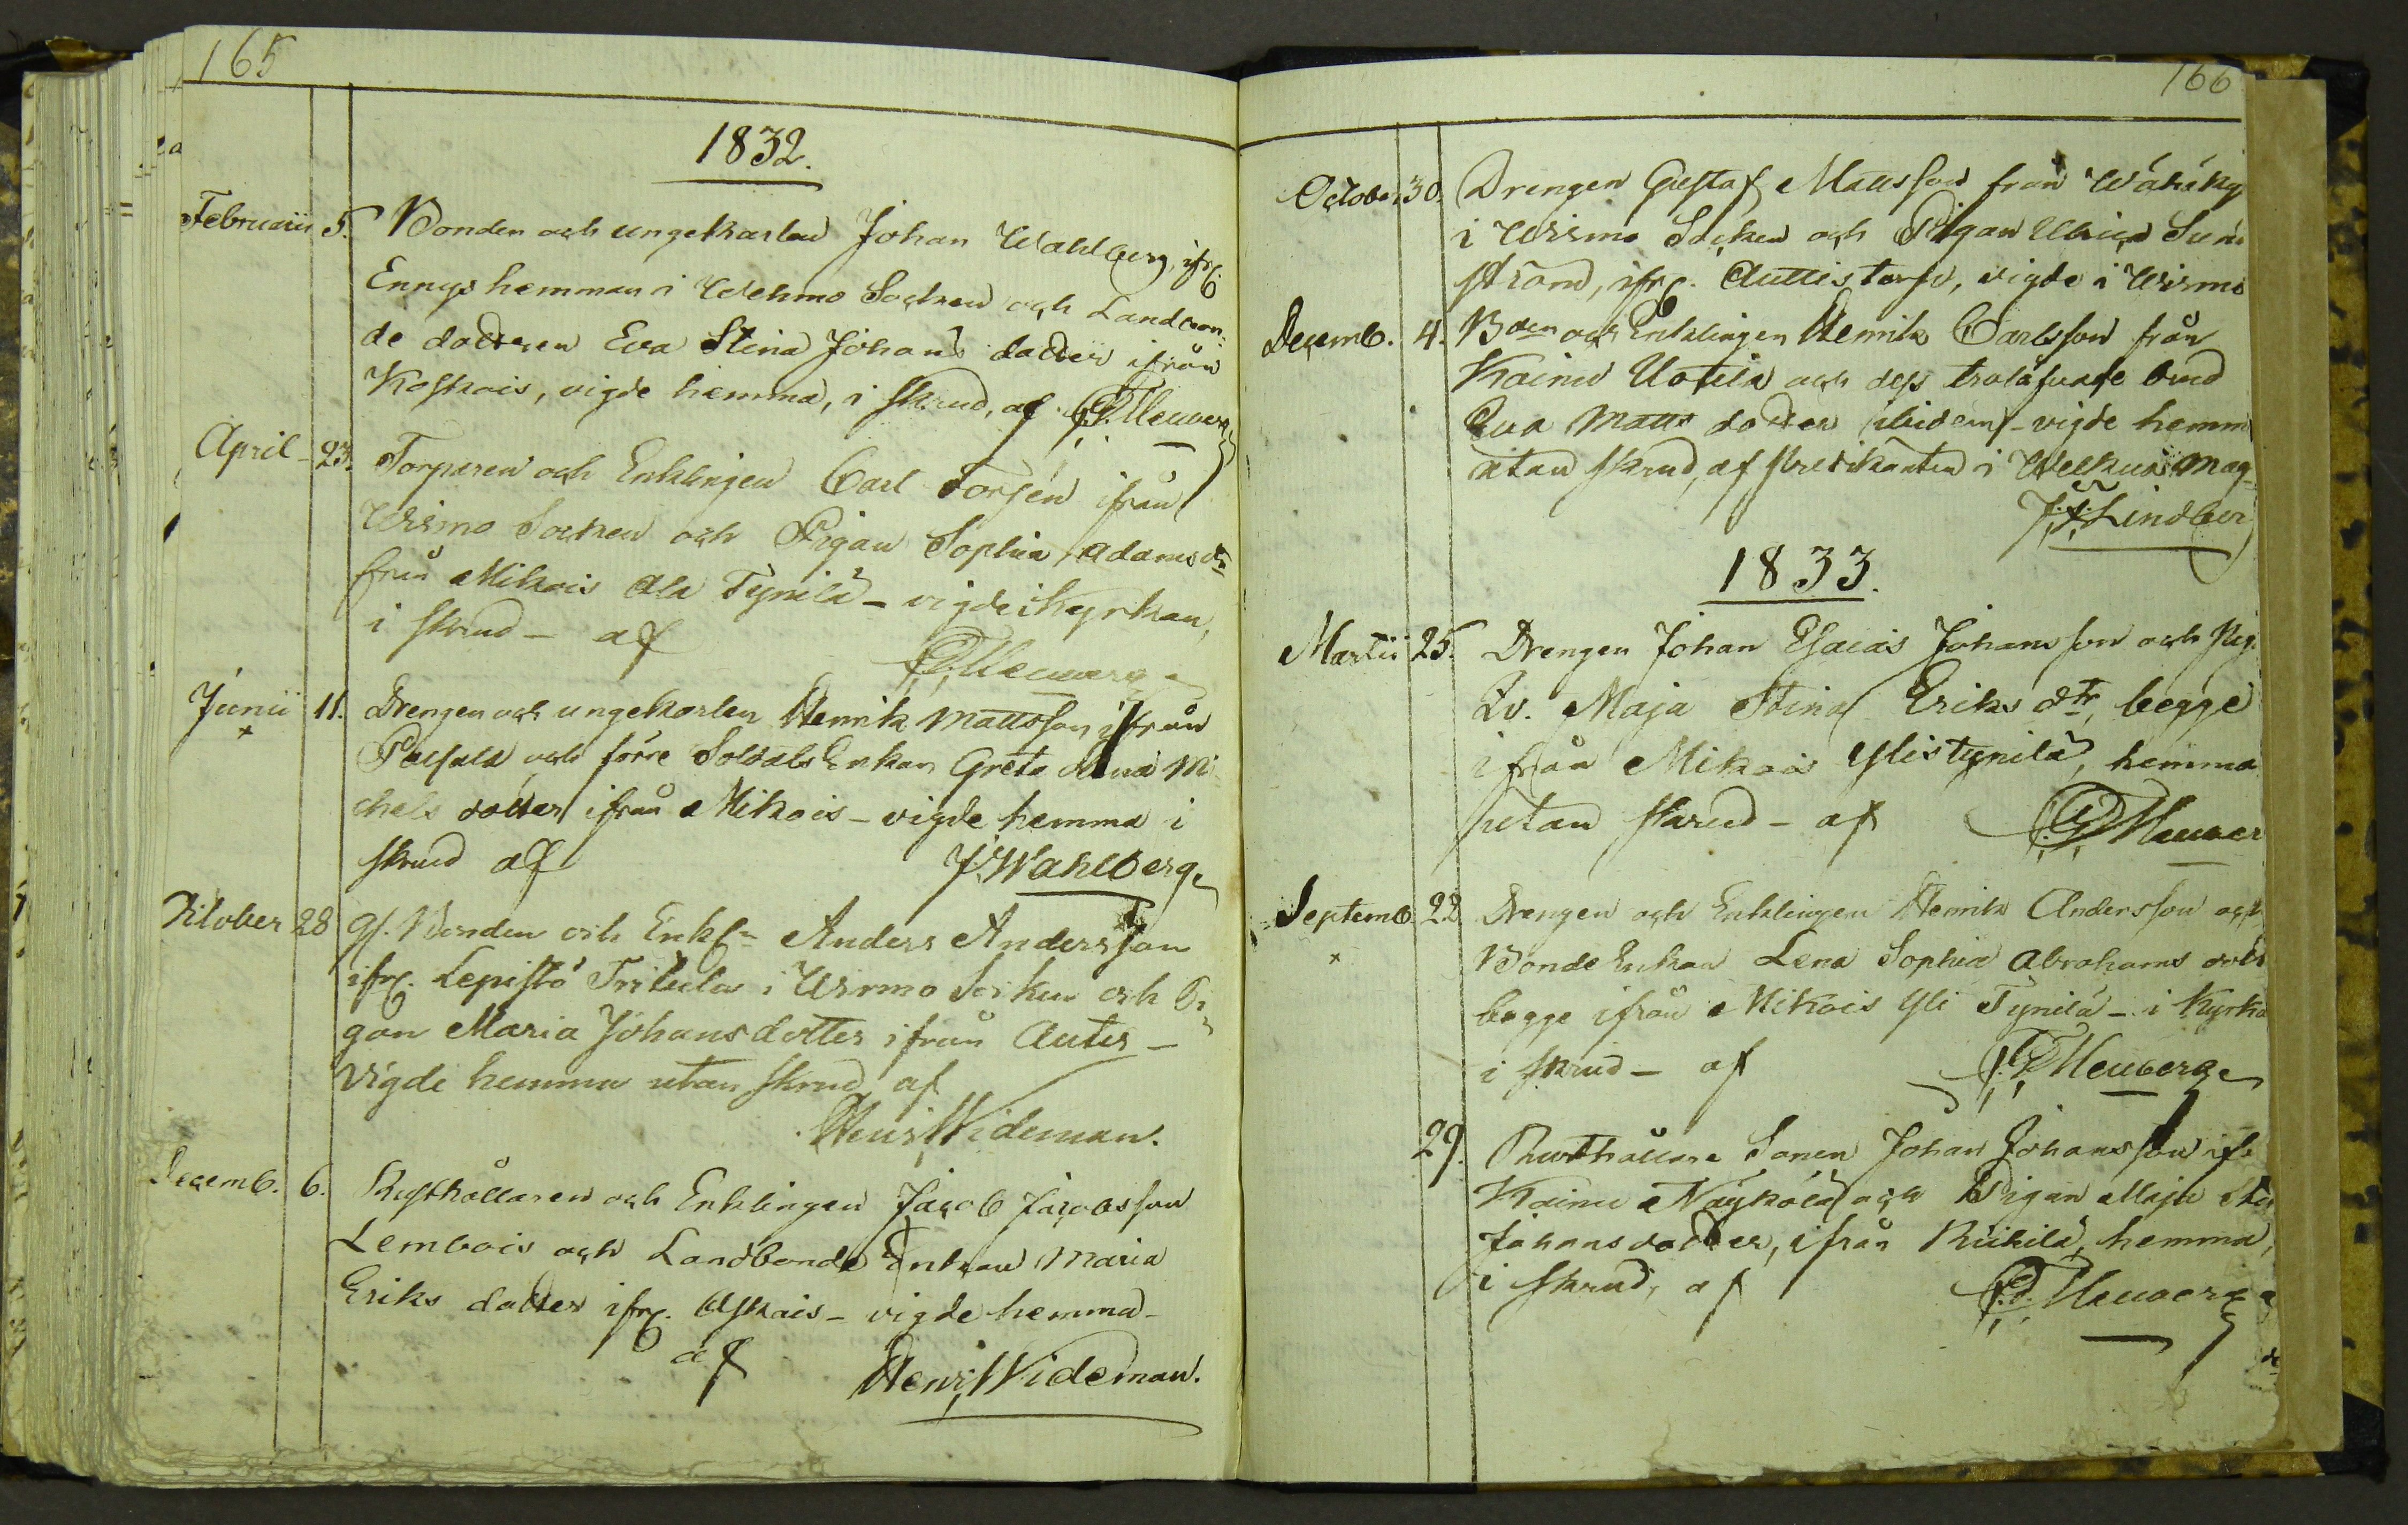 165
1832.
Februarii 5. Bonden och ungekarlen Johan Wahlberg, ifr.
Ennys hemman i Wehmo Socken och Landbon-
de dotteren Eva Stina Johans dotter ifrån
Koskois, vigde hemma, i skrud, af
April 23. Torparen och Enklingen Carl Forsén ifrån
Wirmo Socken och Pigan Sophia Adams dr
från Mikois Ala Tynilä - vigde i kyrkan,
i skrud - af
Junii 11. Drengen och ungekarlen Henrik Mattsson ifrån
och förre Soldats Enkan Greta Mi
chels dotter ifrån Mikois - vigde hemma i
skrud af J. Wahlberg
October 28 Bonden och Anders Andersson
ifr. Lepistö Tritula i Wirmo Socken och Pi
gan Maria Johansdotter ifrån Autis -
Vigde hemma utan skrud af
Henr. Wideman.
Decemb. 6. Rusthållaren och Enklingen Jacob Jacobsson
Lembois och Landbonde Enkan Maria
Eriks dotter ifr. Askais - vigde hemma -
af Henr. Wideman.
166
October 30. Drengen Gustaf Mattsson från
i Wirmo Socken och Pigan Ulrica Sund
ström, ifr. Auttis torp, vigde i Wirmo
Decemb. 4. Bden och Enklingen Henrik Carlsson från
Kainu Uotila och dess trolåfvade brud
Eva Matts dotter ibidem - vigde hemm
utan skrud, af Predikanten i Welkua Mag
Lindber
1833.
Martii 25. Drengen Johan Esaias Johansson och Pig.
Maja Stina Eriks dtr, begge
ifrån Mikois Ylistynilä, hemma
utan skrud - af
Septemb 22 Drengen och Enklingen Henrik Andersson och
Bonde Enkan Lena Sophia Abrahams dotr
begge ifrån Mikois Yli Tynilä - i Kyrka
i skrud - af
29. Rusthållare Sonen Johan Johansson ifr
Kainu Näykölä och Pigan Maja
Johansdotter, ifrån hemma,
i skrud, af